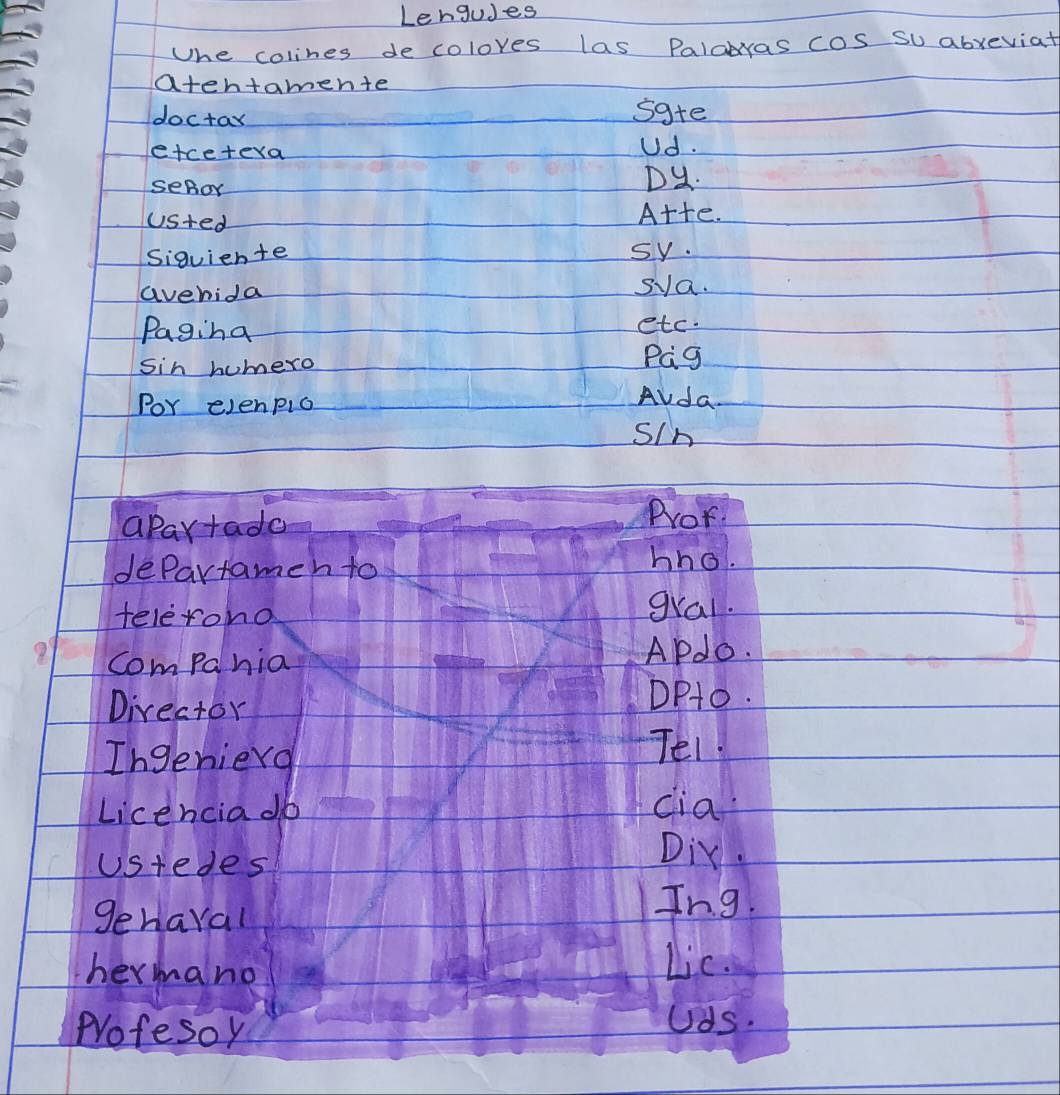 Lengujes
Une colines de colores las Palabras cos su abreviat
atentamente
doctar Sgte
etcetera Ud.
señor Dy.
usted Atte.
siguiente sr.
avenida sra.
Pagina etc.
sin numero Pág
Por ejenplo Avda.
S/n
apartado Prof.
departamento hno.
teléfono gral.
compania Apdo.
Director DPto.
Ingeniero Tel.
Licenciado cia.
ustedes Dir.
genaral Ing.
hermano Lic.
Profesor Uds.